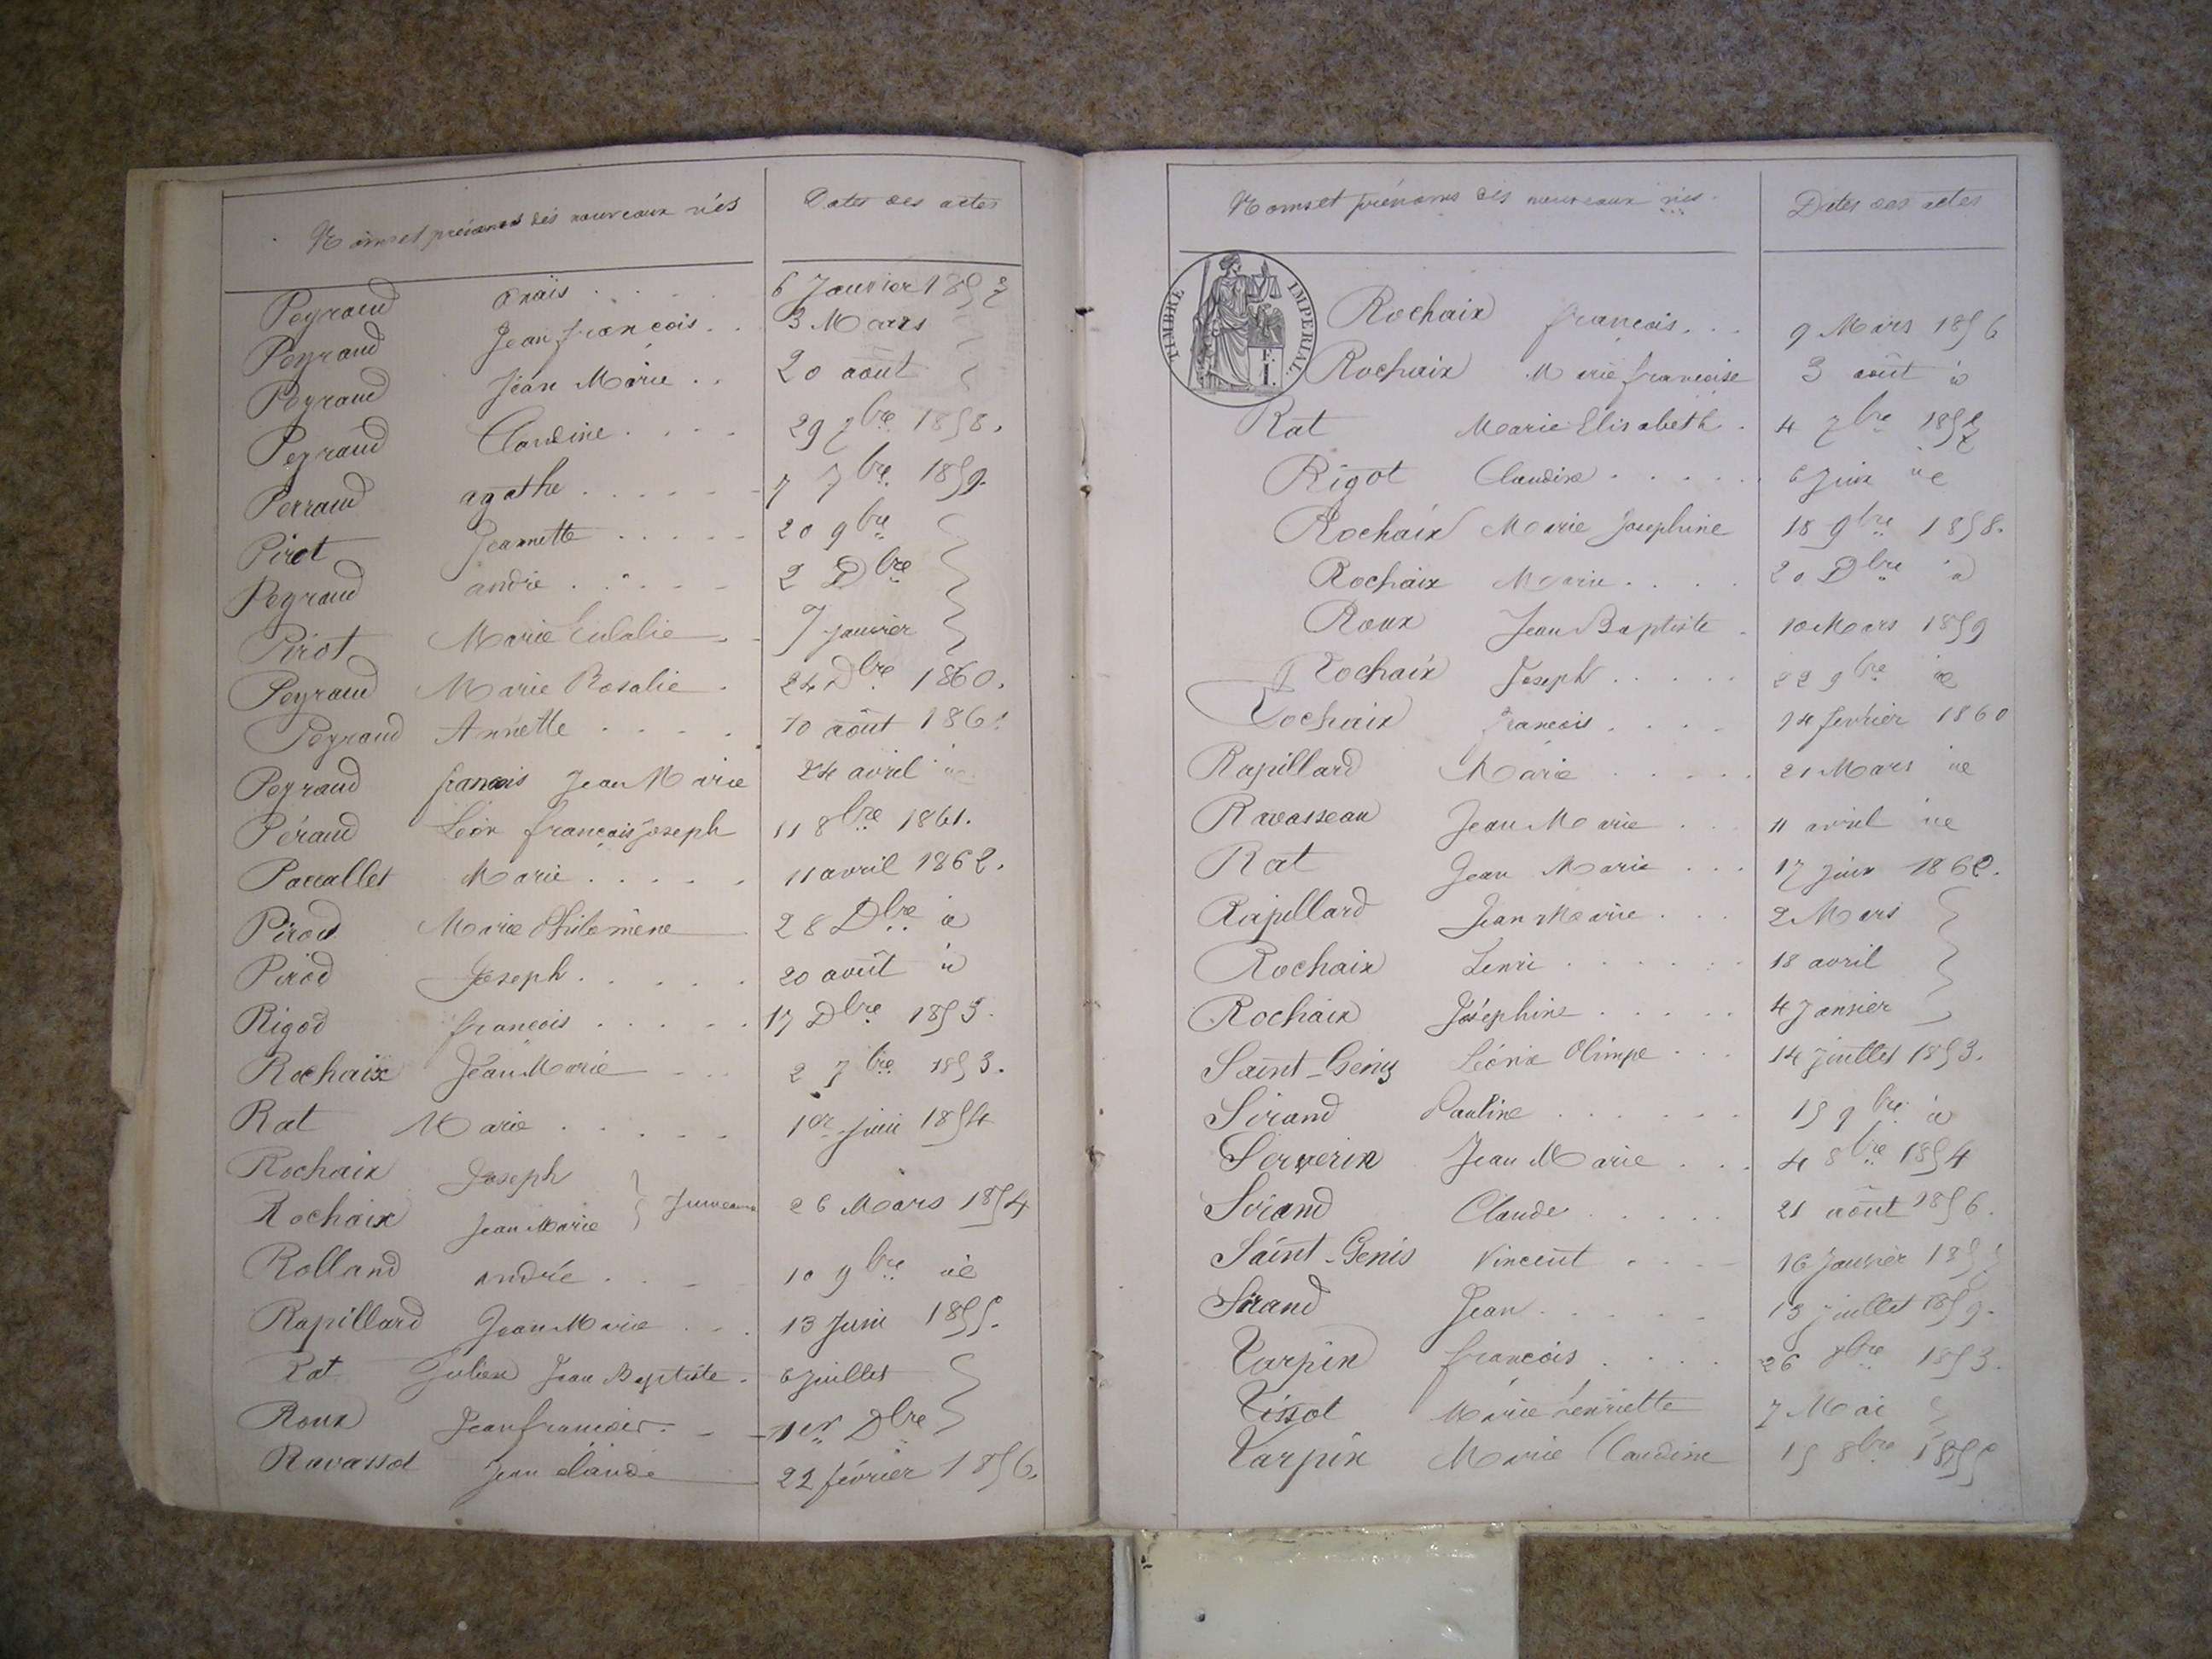 Noms et prénoms des nouveaux nés Dates des actes
Peyraud anaïs 6 Janvier 1857
Peyraud Jean françois 3 Mars
Peyraud Jean Marie 20 août
Peyraud Claudine 29 7bre 1858.
Perraud agathe 7 7bre 1859.
Pirot Jeannette 20 9bre
Peyraud andré 2 Dbre
Pirot Marie Eulalie 7 janvier
Peyraud Marie Rosalie 24 Dbre 1860.
Peyraud Annette 10 août 1861
Peyraud francois Jean Marie 24 avril id
Péraud Léon françois joseph 11 8bre 1861.
Paccallet Marie 11 avril 1862.
Pirod Marie Philomène 28 Dbre id
Pirod Joseph 20 août id
Rigod francois 17 Dbre 1853.
Rochaix Jean Marie 2 7bre 1853.
Rat Marie 1er juin 1854
Rochaix Joseph
Rochaix Jean Marie Jumeaux 26 Mars 1854
Rolland andré 10 9bre id
Rapillard Jean Marie 13 Juin 1855.
Rat Julien Jean Baptiste 6 Juillet
Roux Jean francois 1er Dbre
Ravassot Jean claude 22 février 1856.
Noms et prénoms des nouveaux nés. Dates des actes
TIMBRE IMPERIAL.
Rochaix françois 9 Mars 1856
Rochaix Marie françoise 3 août id
Rat Marie Elisabeth 4 7bre 1857
Rigot Claudine 6 Juin id
Rochaix Marie Josephine 18 9bre 1858.
Rochaix Marie 20 Dbre id
Roux Jean Baptiste 10 Mars 1859
Rochaix Joseph 22 9bre id
Rochaix francois 14 fevrier 1860
Rapillard Marie 21 Mars id
Ravasseau Jean Marie 11 avril id
Rat Jean Marie 17 juin 1862.
Rapillard Jean Marie 2 Mars
Rochaix henri 18 avril
Rochaix Joséphine 4 Janvier
Saint-Genis Léonie Olimpe 14 juillet 1853.
Sirand Pauline 15 9bre id
Serverin Jean Marie 4 8bre 1854
Sirand Claude 21 août 1856.
Saint-Genis Vincent 16 Janvier
Sirand Jean 13 juillet 1859.
Tarpin francois 26 1853.
Tissot Marie henriette 7 Mai
Tarpin Marie Claudine 15 8bre 1855